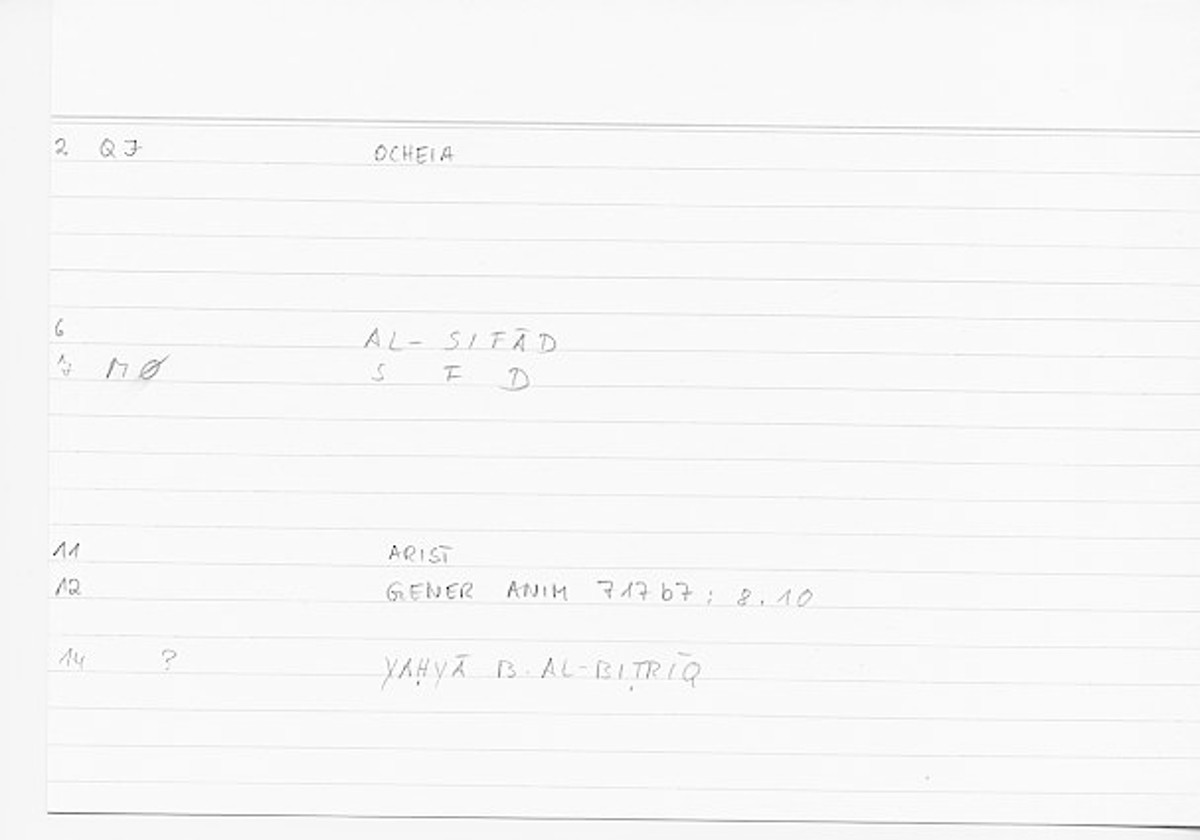 2 QJ OCHEIA
6 AL-SIFĀD
7 MØ S F D
11 ARIST
12 GENER ANIM 717b7; 8.10
14 ? YAḤYĀ B. AL-BIṬRĪQ